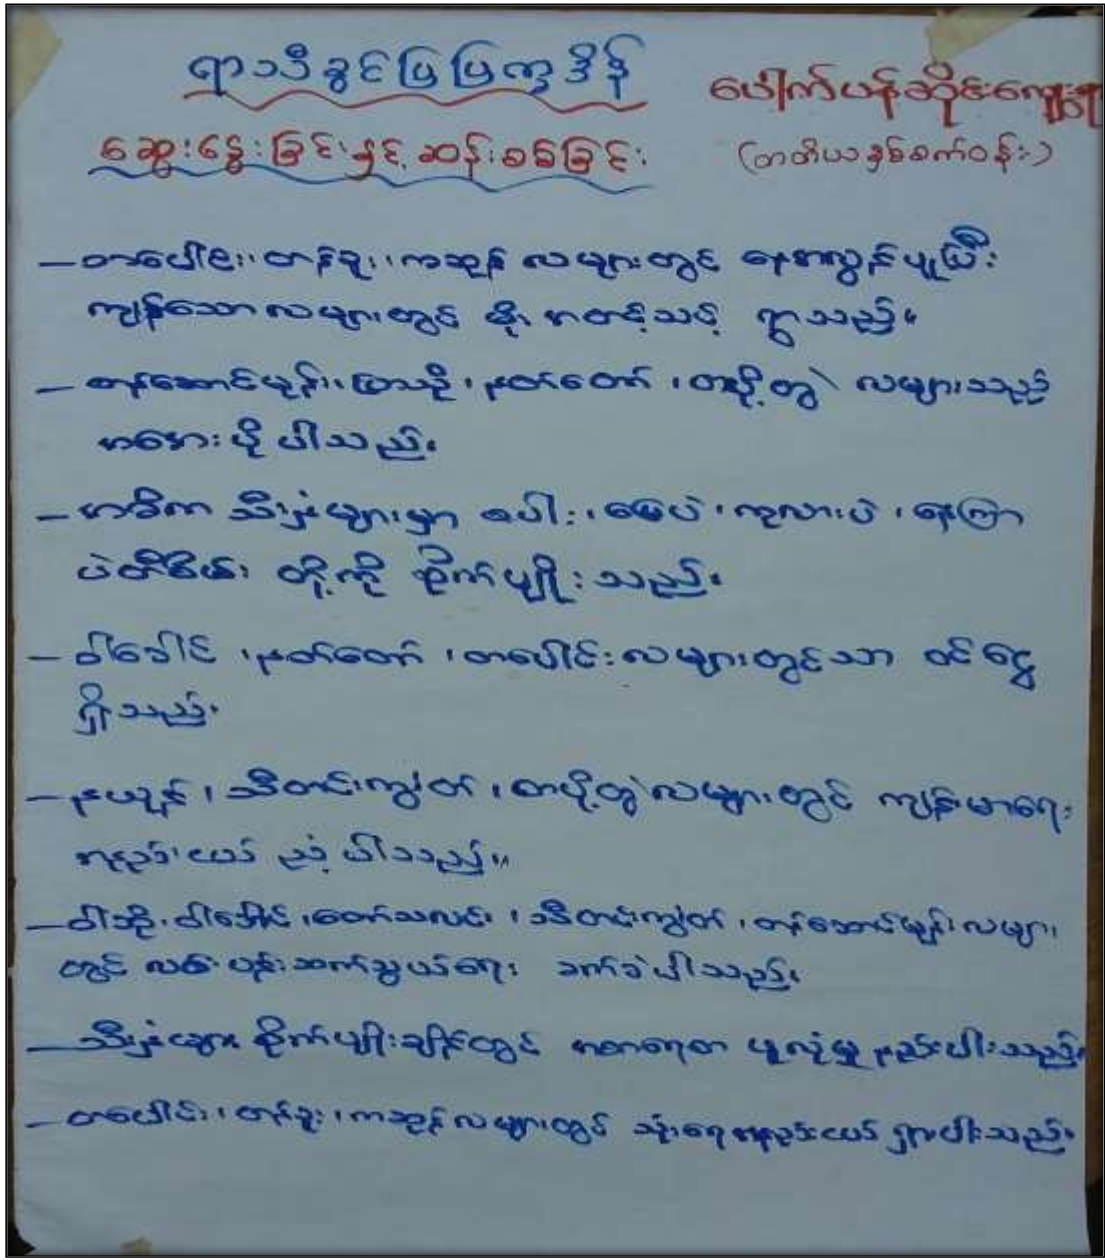 ရာသီခွင်ပြပြက္ခဒိန်
ပေါက်ပန်းဆိုင်ကျေးရွာ
ဆွေးနွေးခြင်းနှင့် ဆန်းစစ်ခြင်း
(တတိယနှစ်စက်ဝန်း)
– တပေါင်း၊ တန်ခူး၊ ကဆုန် လများတွင် နေအလွန်ပူပြီး
ကျန်သောလများတွင် မိုး မတင့်သင့် ရွာသည်။
– တန်ဆောင်မုန်း၊ ပြာသို၊ နတ်တော်၊ တပို့တွဲ လများသည်
အအေးပိုပါသည်။
– အဓိက သီးနှံများမှာ စပါး၊ မြေပဲ၊ ကုလားပဲ၊ နေကြာ
ပဲတီစိမ်း တို့ကို စိုက်ပျိုးသည်။
– ဝါခေါင်၊ နတ်တော်၊ တပေါင်းလများတွင်သာ ဝင်ငွေ
ရှိသည်။
– နယုန်၊ သီတင်းကျွတ်၊ တပို့တွဲလများတွင် ကျန်းမာရေး
အနည်းငယ် ညံ့ပါသည်။
– ဝါဆို၊ ဝါခေါင်၊ တော်သလင်း၊ သီတင်းကျွတ်၊ တန်ဆောင်မုန်း လများ
တွင် လမ်းပန်းဆက်သွယ်ရေး ခက်ခဲပါသည်။
– သီးနှံများ စိုက်ပျိုးချိန်တွင် အစာရေစာ ဖူလုံမှု နည်းပါးသည်။
– တပေါင်း၊ တန်ခူး၊ ကဆုန်လများတွင် သုံးရေအနည်းငယ် ရှားပါးသည်။